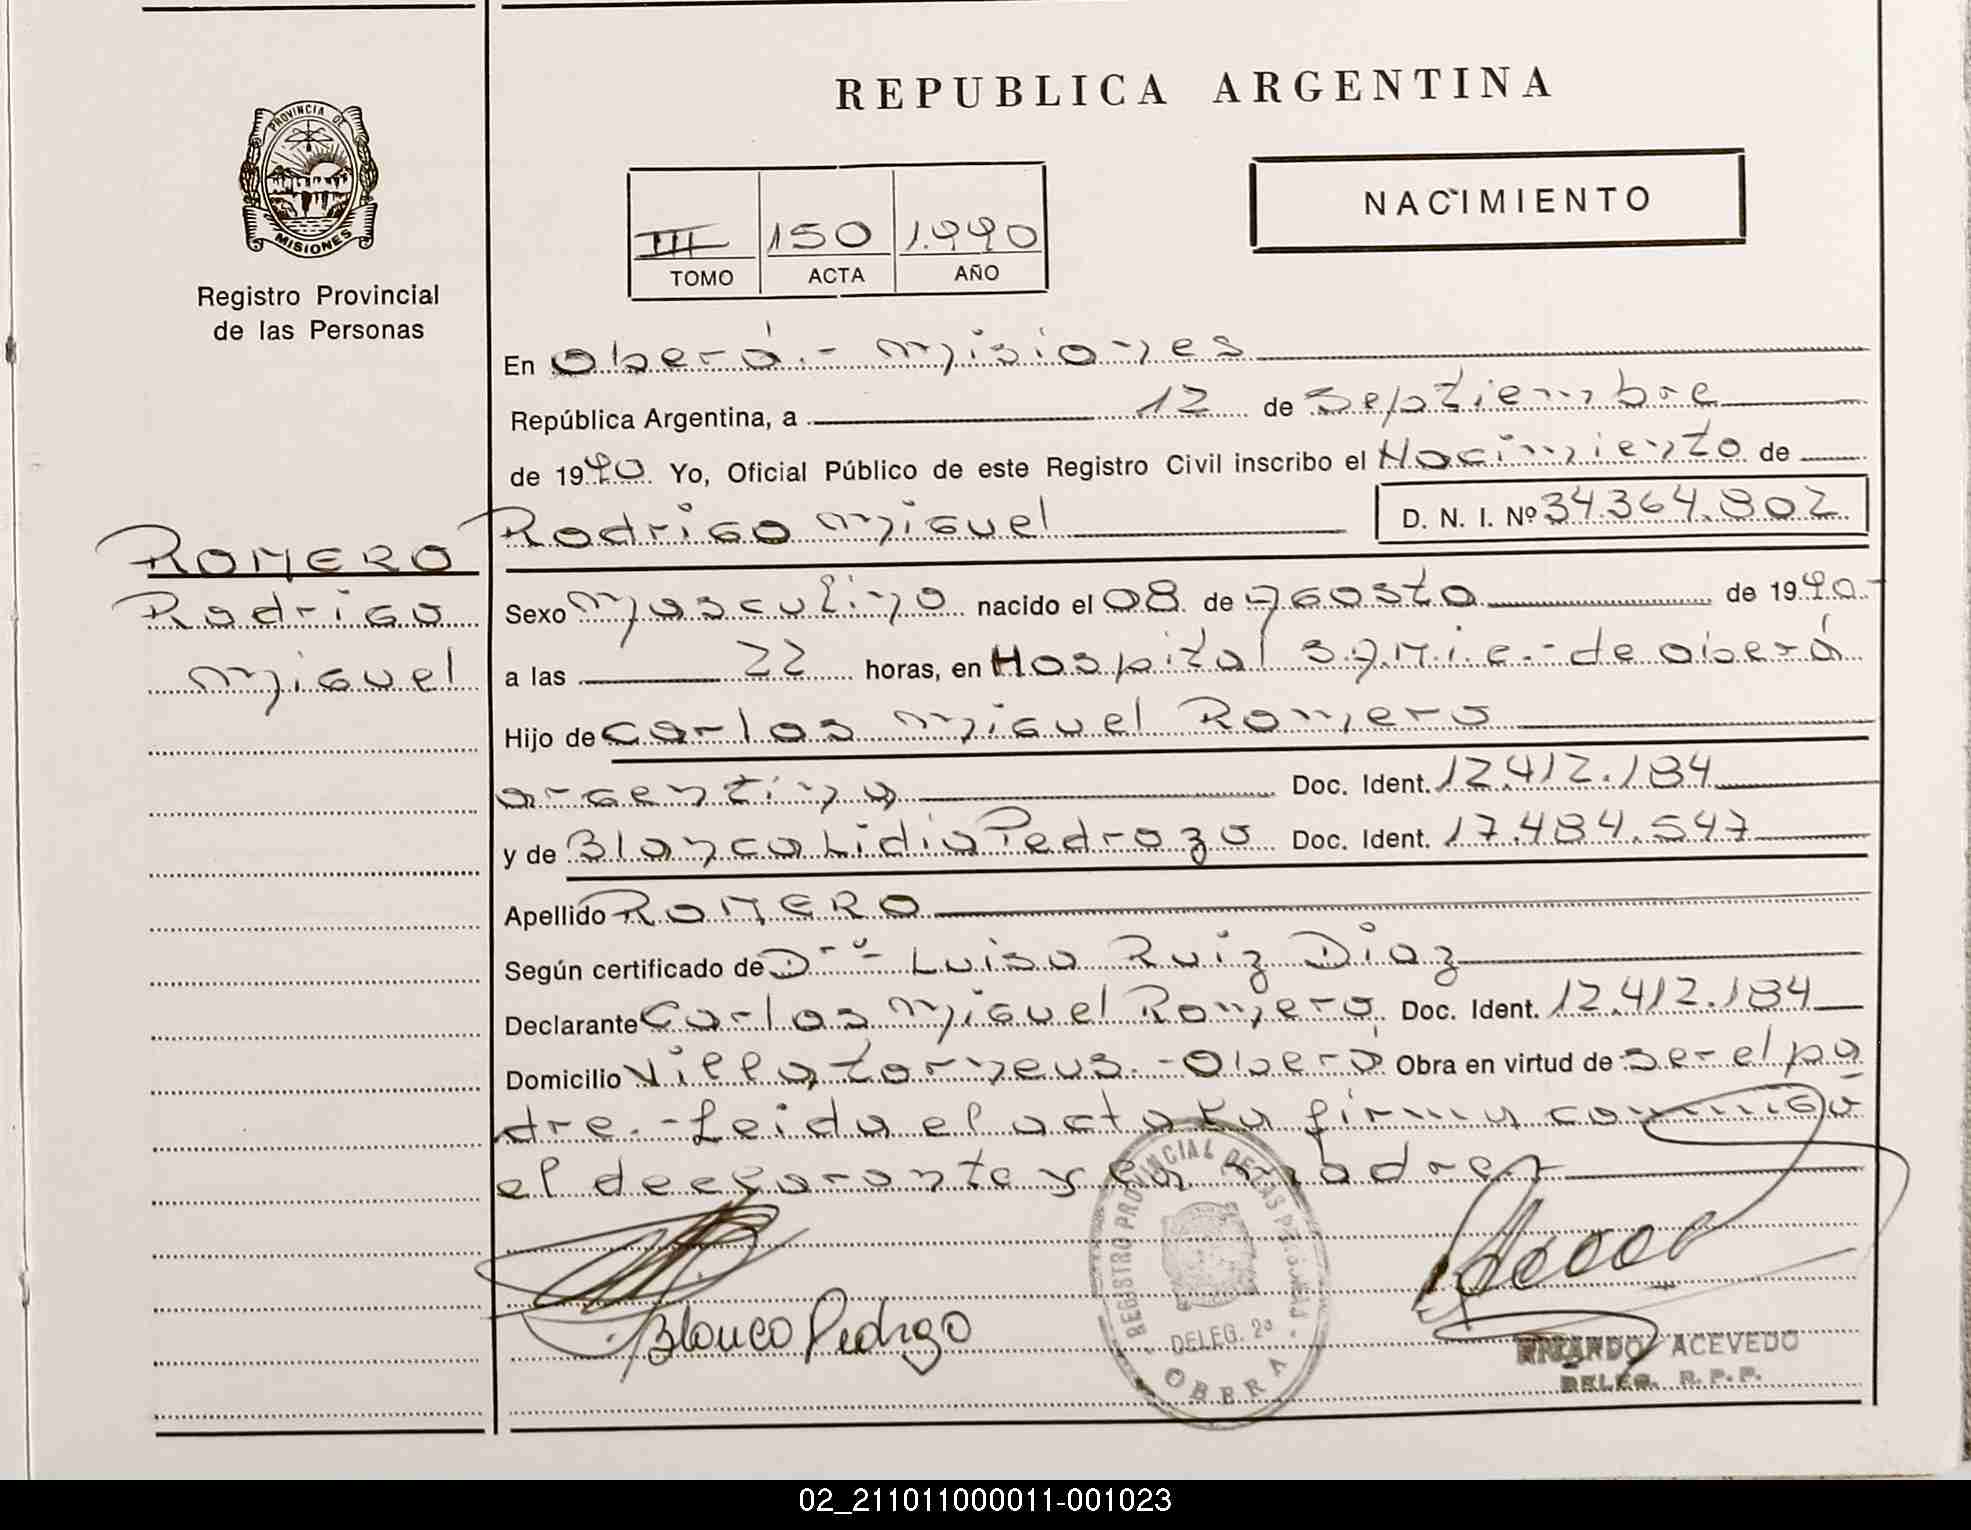 REPUBLICA ARGENTINA
PROVINCIA DE
MISIONES
Registro Provincial
de las Personas
NACIMIENTO
III 150 1.990
TOMO ACTA AÑO
En Oberá.- Misiones
República Argentina, a 12 de Septiembre
de 1990 Yo, Oficial Público de este Registro Civil inscribo el Nacimiento de
Rodrigo Miguel D. N. I. Nº 34.364.802
ROMERO
Rodrigo
Miguel
Sexo Masculino nacido el 08 de Agosto de 1990-
a las 22 horas, en Hospital S.A.M.i.c.- de Oberá
Hijo de Carlos Miguel Romero
argentino Doc. Ident. 12.412.184
y de Blanca Lidia Pedrozo Doc. Ident. 17.484.547
Apellido ROMERO
Según certificado de Dr.- Luisa Ruiz Diaz
Declarante Carlos Miguel Romero Doc. Ident. 12.412.184
Domicilio Villa torneus.- Oberá Obra en virtud de ser el pa
dre.- Leida el acta la firma conmigo
el declarante y la madre
Blanca Pedrozo
REGISTRO PROVINCIAL DE LAS PERSONAS
DELEG. 2ª
OBERA
ACEVEDO
DELEG. R. P. P.
02_211011000011-001023